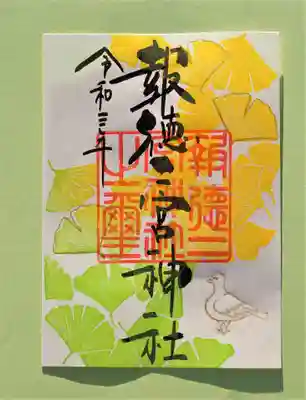 報徳二宮神社
令和三年
報徳二
宮神社
之璽